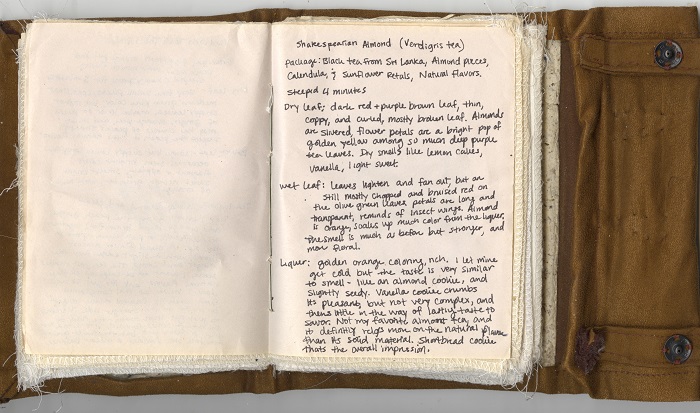 Shakespearian Almond (Verdigris tea)
Package: Black tea from Sri Lanka, Almond pieces,
Calendula, & Sunflower Petals, Natural flavors.
Steepd 4 minutes
Dry Leaf: dark red + purple brown leaf, thin,
coppy, and curled, mostly brown leaf. Almonds
are slivered, flower petals are a bright pop of
golden yellow among so much deep purple
tea leaves. Dry smells like lemon cakes,
vanilla, light sweet.
Wet Leaf: Leaves lighten and fan out, but are
still mostly chopped and bruised red on
the olive green leaves. petals are long and
transparent, reminds of insect wings. Almond
is orange, soaks up much color from the liquer,
the smell is much as before but stronger, and
more floral.
Liquer: golden orange coloring, rich. I let mine
get cold but the taste is very similar
to smell - like an almond cookie, and
slightly seedy. Vanilla cookie crumbs
Its pleasant, but not very complex, and
theres little in the way of lasting taste to
savor. Not my favorite almond tea, and
it definitly relys more on the natural flavor
than its solid material. Shortbread cookie
thats the overall impression.